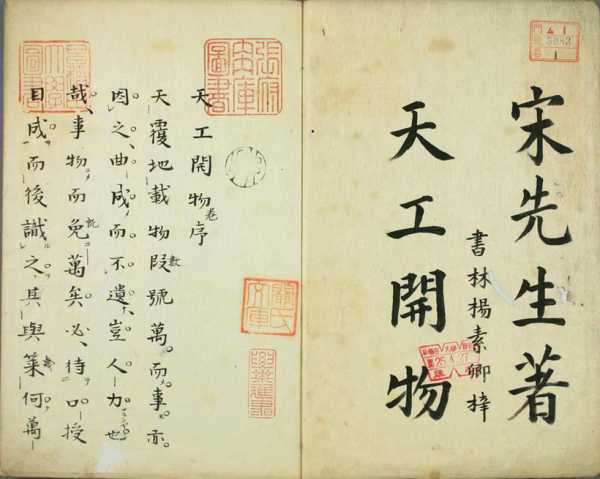 宋先生著
書林揚素卿梓
天工開物
天工開物卷序
天覆地載物段數號萬而事亦
因之曲成而不遺豈人力也
哉事物而既免萬矣必待口授
目成而後識之其與幾何萬
5083
1